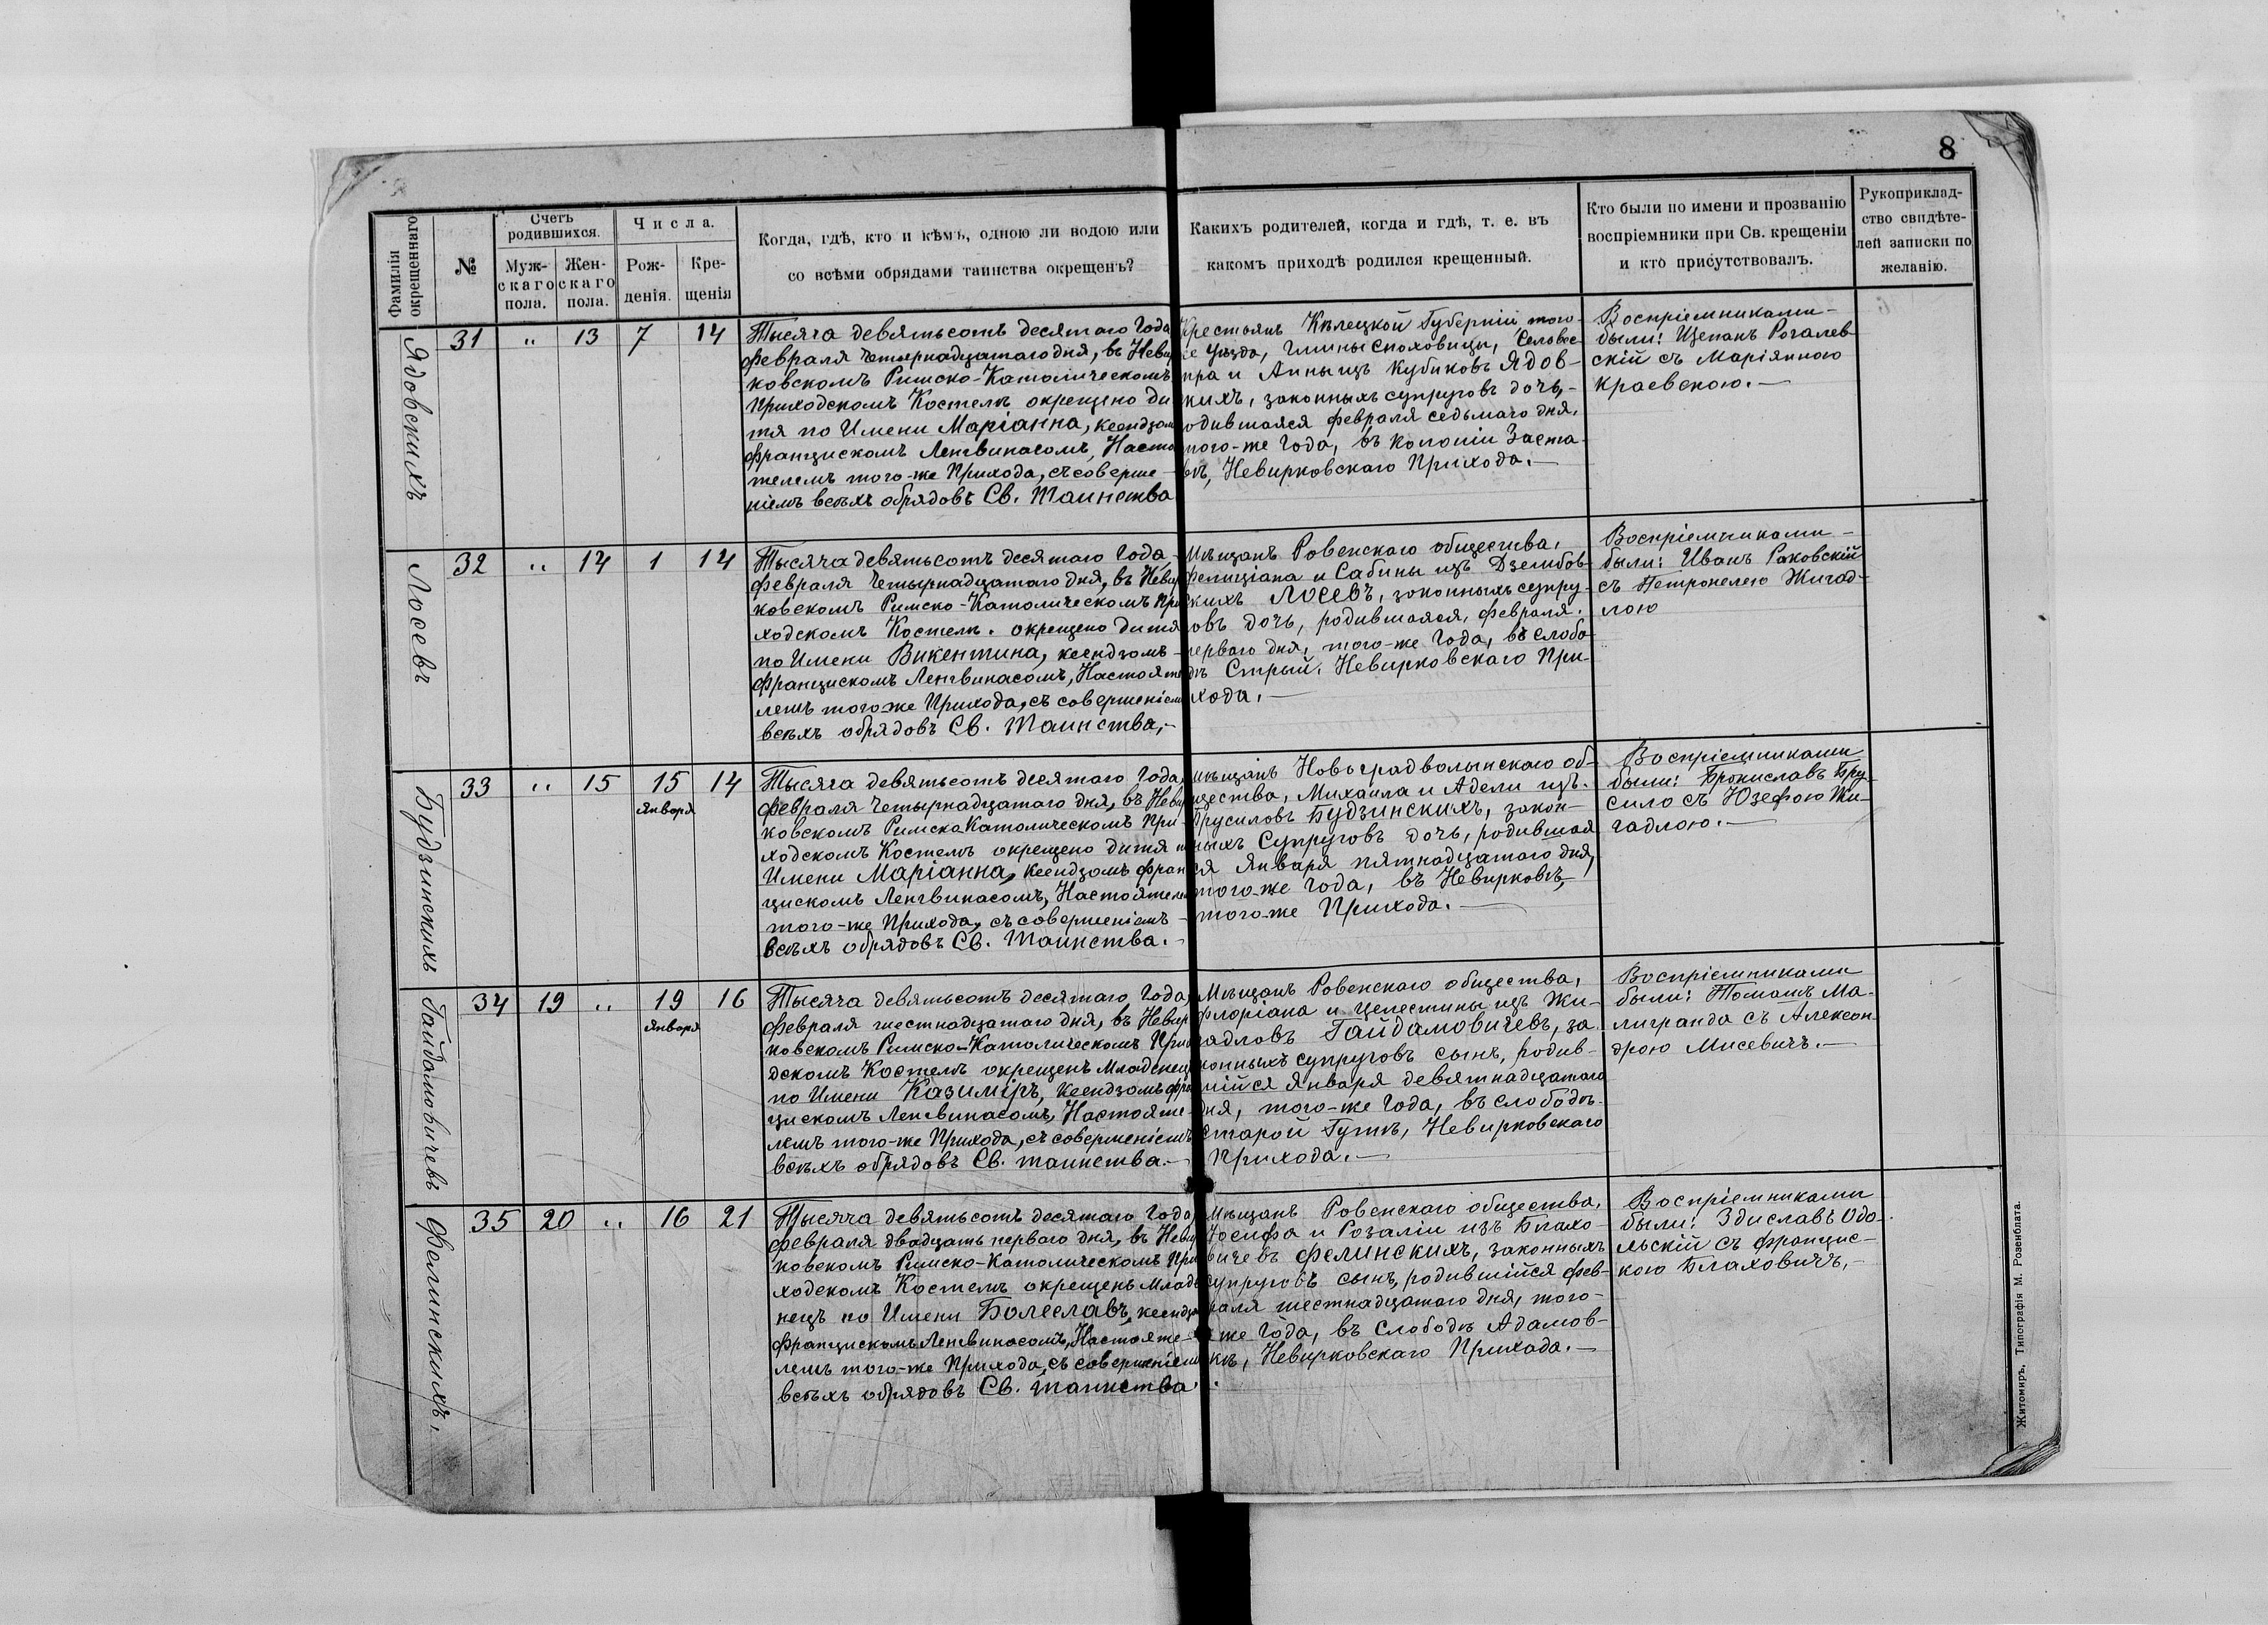 8
Фамилія окрещеннаго
№
Счетъ родившихся.
Муж-
скаго
пола.
Жен-
скаго
пола.
Числа.
Рож-
денія.
Кре-
щенія
Когда, гдѣ, кто и кѣмъ, одною ли водою или
со всѣми обрядами таинства окрещенъ?
Какихъ родителей, когда и гдѣ, т. е. въ
какомъ приходѣ родился крещенный.
Кто были по имени и прозванію
воспріемники при Св. крещеніи
и кто присутствовалъ.
Рукоприклад-
ство свидѣте-
лей записки по
желанію.
Ядовскихъ
31 " 13 7 14
Тысяча девятьсотъ десятаго Года
февраля четырнадцатаго дня, въ Невир
ковскомъ Римско-Католическомъ
Приходскомъ Костелѣ окрещено ди
тя по Имени Маріанна, ксендзомъ
Францискомъ Ленгвинасомъ, Насто
телемъ того-же Прихода, съ соверше-
ніемъ всѣхъ обрядовъ Св. Таинства
Крестьянъ Кѣлецкой Губерніи, того-
же Уѣзда, Гмины
пра и Анны изъ Кубиковъ Ядов-
кихъ, законныхъ супруговъ дочь,-
одившаяся февраля седьмаго дня,
того-же Года, въ Колоніи Заста-
вѣ, Невирковскаго Прихода.-
Воспріемниками-
были: Щепанъ Рогалев-
скій съ Маріянною
Краевскою.-
Лосевъ
32 " 14 1 14
Тысяча девятьсотъ десятаго Года-
февраля Четырнадцатаго дня, въ Невир
ковскомъ Римско-Католическомъ При
ходскомъ Костелѣ. окрещено дитя
по Имени Викентина, ксендзомъ-
Францискомъ Ленгвинасомъ, Настояте
лемъ того же Прихода, съ совершеніем
всѣхъ обрядовъ Св. Таинства,-
Мѣщанъ Ровенскаго общества,
Фелиціана и Сабины изъ Дзембов-
скихъ Лосевъ, законныхъ супру-
овъ дочь, родившаяся, февраля.
перваго дня, того-же Года, въ слобо-
дѣ Стрый, Невирковскаго При-
хода.-
Воспріемниками-
были: Иванъ Раковскій
съ Петронелею Жигад-
лою
Будзинскихъ
33 " 15 15 14
января
Тысяча девятьсотъ десятаго Года
февраля четырнадцатаго дня, въ Невир
ковскомъ Римско Католическомъ При-
ходскомъ Костелѣ окрещено дитя п
Имени Маріанна, ксендзомъ Фран
цискомъ Ленгвинасомъ, Настоятеле
того-же Прихода, съ совершеніемъ-
всѣхъ обрядовъ Св. Таинства.-
мѣщанъ Новоградволынскаго об-
щества, Михаила и Адели изъ.
Брусиловъ Будзинскихъ, закон-
ныхъ Супруговъ дочь, родившая
ся Января пятнадцатаго дня,
того-же года, въ Невирковѣ,
того-же Прихода.-
Воспріемниками
были: Брониславъ Бру-
сило съ Юзефою Жи-
гадлою.-
Гайдамовичевъ
34 19 " 19 16
января
Тысяча девятьсотъ десятаго Года,
февраля шестнадцатаго дня, въ Невир
ковскомъ Римско-Католическомъ Прихо
дскомъ Костелѣ окрещенъ Младенец
по Имени Казиміръ, Ксендзомъ Фра
цискомъ Ленгвинасомъ, Настояте-
лемъ того-же Прихода, съ совершеніемъ
всѣхъ обрядовъ Св. таинства.-
Мѣщанъ Ровенскаго общества,
Флоріана и Целестины изъ Жи-
гадловъ Гайдамовичевъ, за
конныхъ супруговъ сынъ, родив-
шійся Января девятнадцатаго
дня, того-же Года, въ слободѣ-
Старой Гутѣ, Невирковскаго
Прихода.-
Воспріемниками
были: Томашъ Ма-
лигранда съ Алексан-
дрою Мисевичъ.-
Фелинскихъ,
35 20 " 16 21
Тысяча девятьсотъ десятаго Года
февраля двадцать перваго дня, въ Невир
ковскомъ Римско-Католическомъ При
ходскомъ Костелѣ окрещенъ Младе
нецъ по Имени Болеславъ, ксендзо
Францискомъ Ленгвинасомъ, Настояте-
лемъ того-же Прихода, съ совершеніем
всѣхъ обрядовъ Св. таинства.
Мѣщанъ Ровенскаго общества,
Іосифа и Розаліи изъ Блахо-
вичевъ Фелинскихъ, законныхъ
супруговъ сынъ, родившійся фев-
раля шестнадцатаго дня, того-
же Года, въ Слободѣ Адамов-
кѣ, Невирковскаго Прихода.-
Воспріемниками
были: Здиславъ Одо-
льскій съ Францис-
кою Блаховичъ,-
Житомиръ, Типографія М. Розенблата.